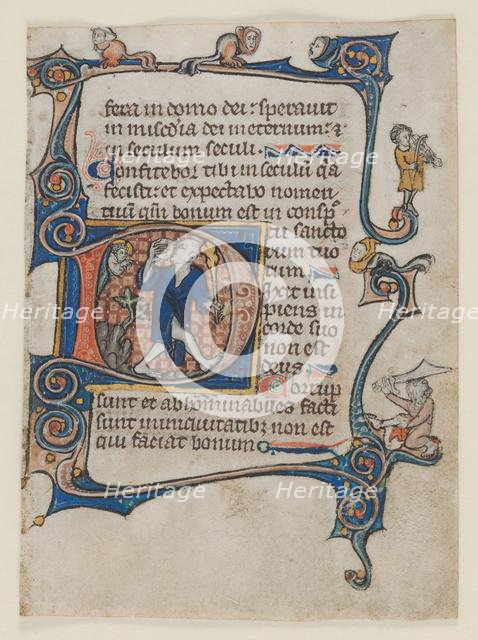 fera in domo dei: speravit
in misc̄dia dei in eternum: ⁊
in seculum seculi.
Confitebor tibi in seculū q̄a
fecisti: et expectabo nomen
tuū qm̄ bonum est in consp̄
tu sancto
rum tuo
rum
Dixit insi
piens in
corde suo
non est
deus
Corrup
sunt et abhominabiles facti
sunt in iniquitatibꝫ non est
qui faciat bonum
Heritage
Heritage
Heritage
Heritage
Heritage
Heritage
Heritage
Heritage